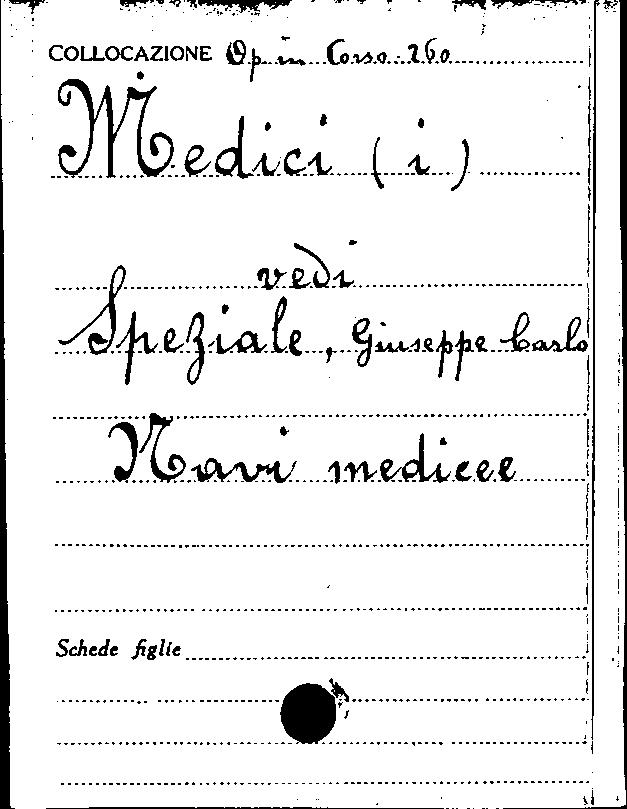 COLLOCAZIONE Op in Corso. 260
Medici (i)
vedi
Speziale, Giuseppe Carlo
Navi medicee
Schede figlie